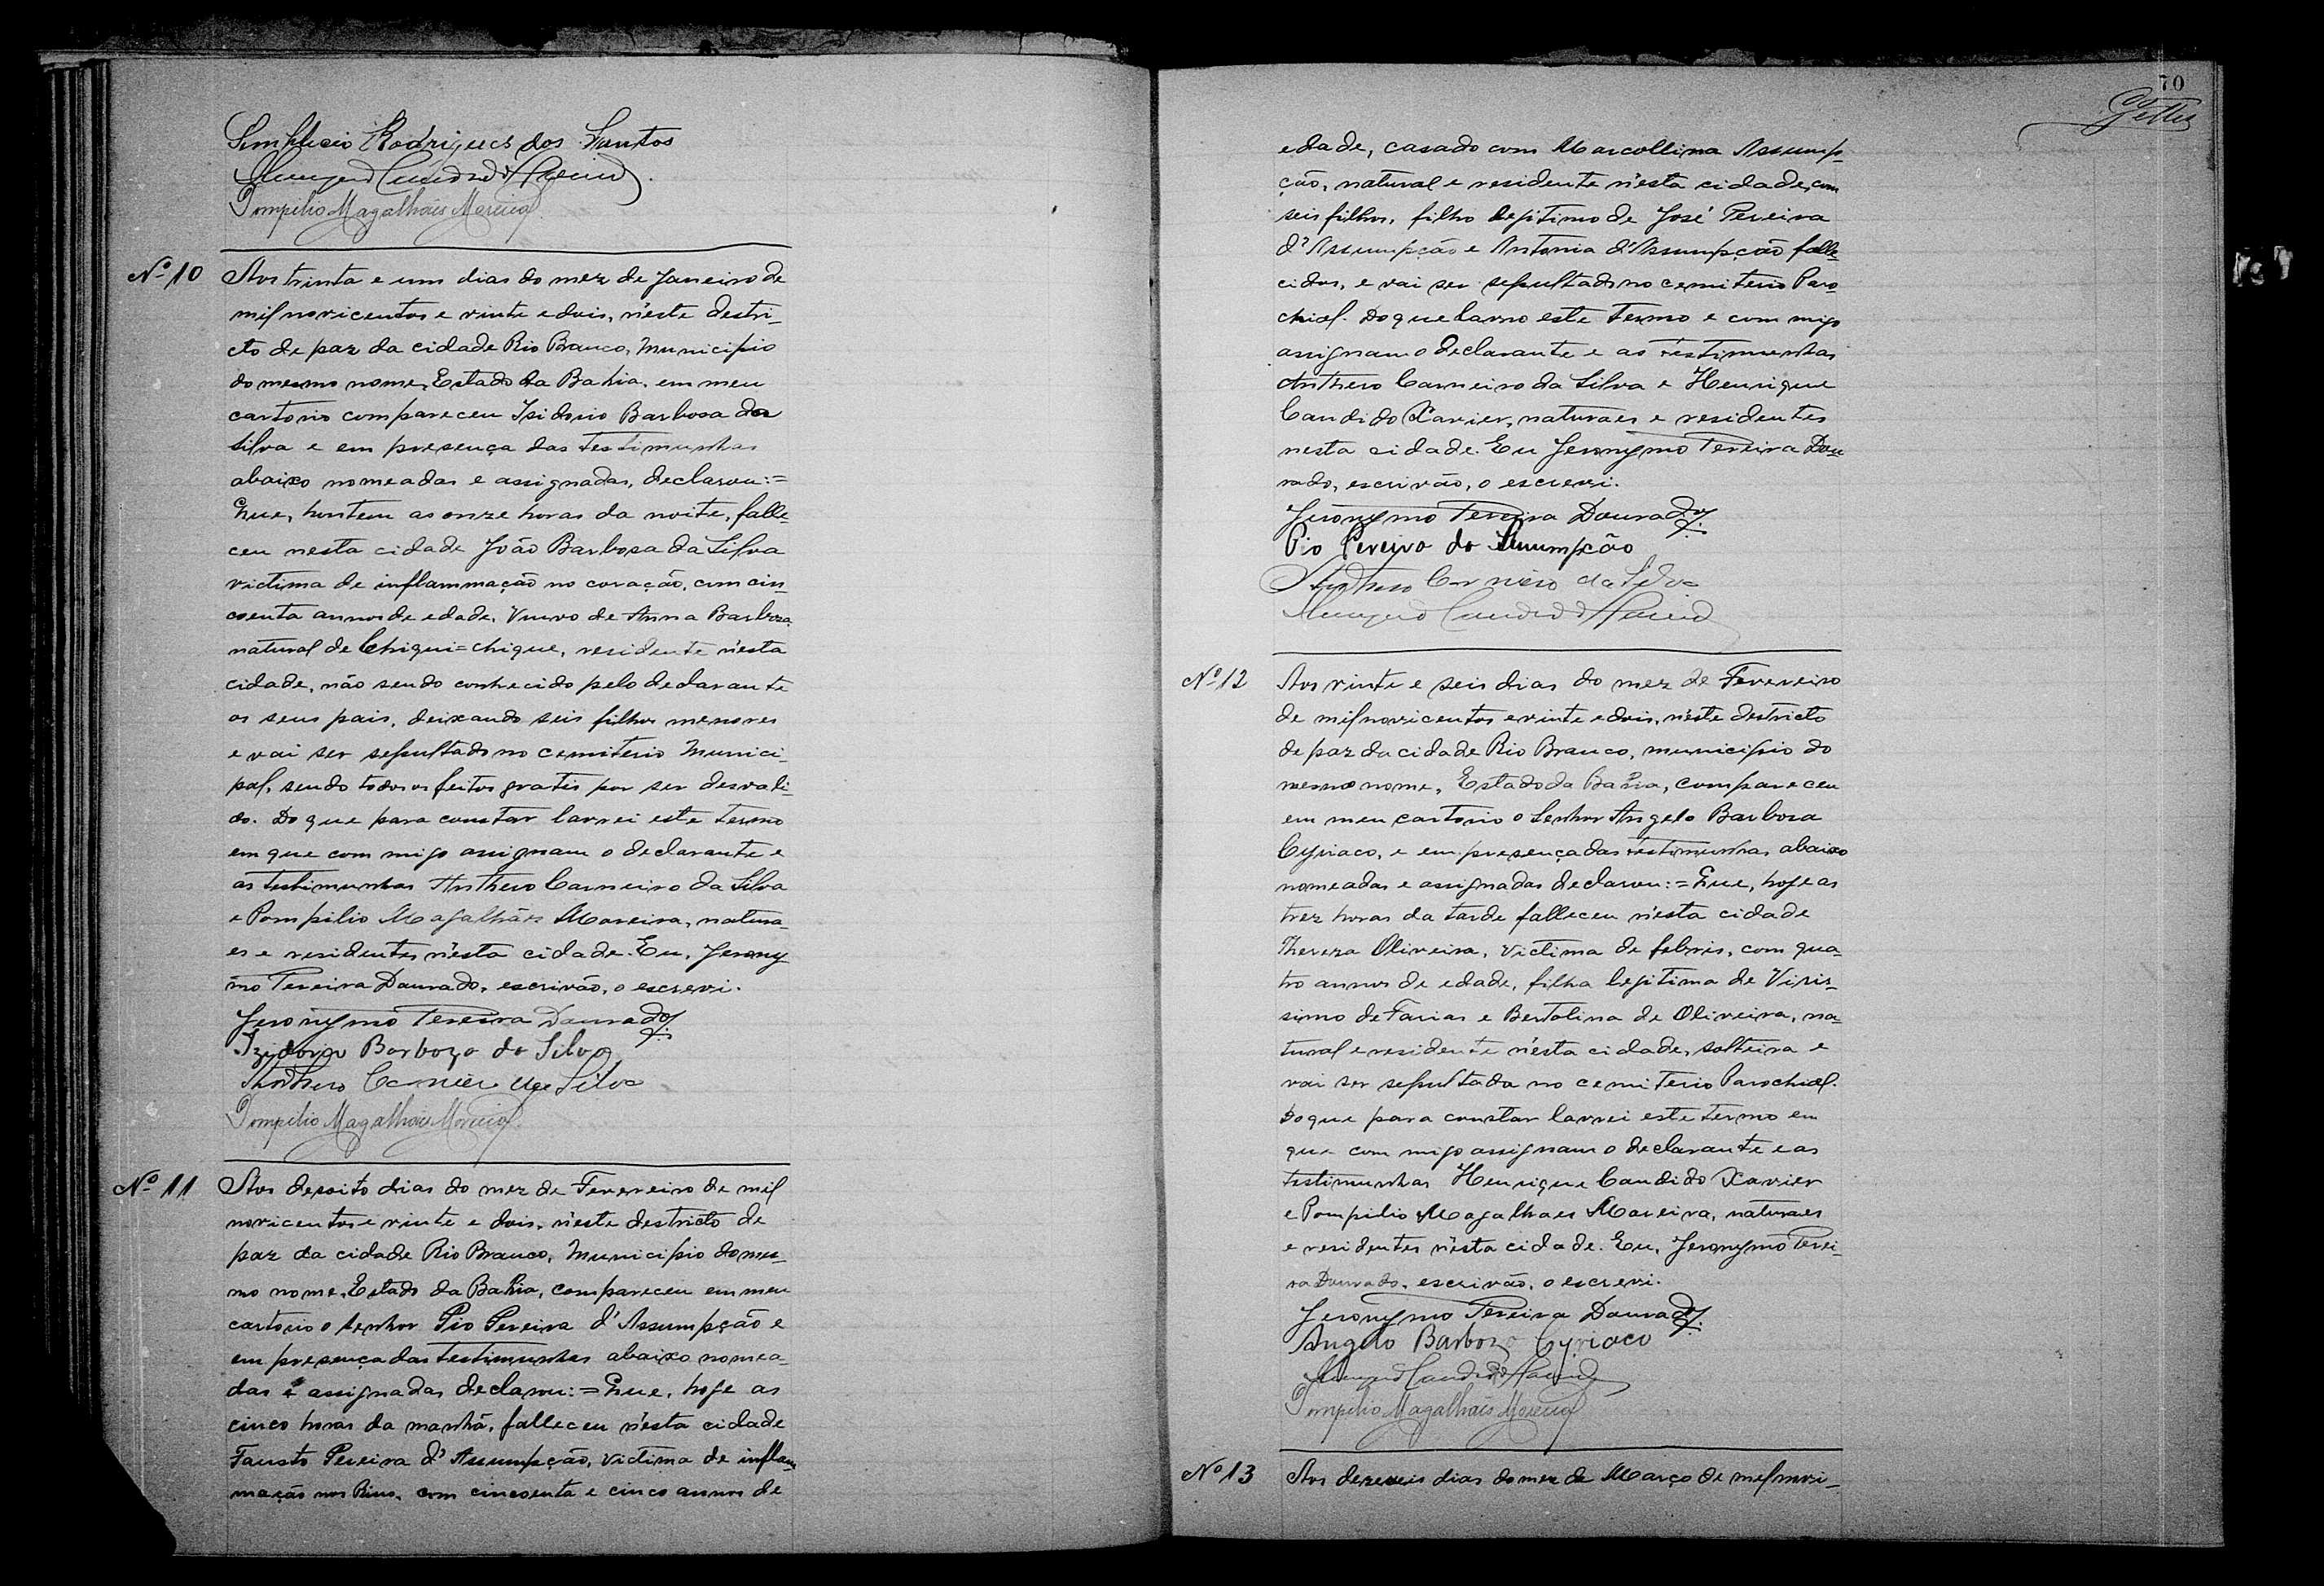 Simplicio Rodrigues dos Santos
Henrique Candido Xavier
Pompilio Magalhães Moreira
Nº 10
Aos trinta e um dias do mez de Janeiro de
mil novicentos e vinte e dois, n'este destri-
cto de paz da cidade Rio Branco, Municipio
do mesmo nome, Estado da Bahia, em meu
cartorio compareceu Isidorio Barbosa da
Silva e em presença das testimunhas
abaixo nomeadas e assignadas, declarou:=
Que, hontem as onze horas da noite, falle-
ceu nesta cidade João Barbosa da Silva
victima de inflammação no coração, com cin-
coenta annos de edade, Viuvo de Anna Barboza
natural de Chique=chique, residente n'esta
cidade, não sendo conhecido pelo declarante
os seus pais, deixando seis filhos menores
e vai ser sepultado no cemiterio Munici-
pal, sendo todos os feitos gratis por ser desvali-
do. Do que para constar lavrei este termo
em que com migo assignam o declarante e
as testimunhas Anthero Carneiro da Silva
e Pompilio Magalhães Moreira, natura-
es e residentes n'esta cidade. Eu, Jerony
mo Pereira Dourado, escrivão, o escrevi.
Jeronymo Pereira Dourado
Izidorio Barbozo da Silva
Anthero Carneiro da Silva
Pompilio Magalhães Moreira
Nº 11
Aos desoito dias do mez de Fevereiro de mil
novicentos e vinte e dois, n'este destricto de
paz da cidade Rio Branco, Municipio do mes-
mo nome, Estado da Bahia, compareceu em meu
cartorio o senhor Pio Pereira d'Assumpção e
em presença das testimunhas abaixo nomea-
das e assignadas declarou:=Que, hoje as
cinco horas da manhã, falleceu n'esta cidade
Fausto Pereira d'Assumpção, victima de inflam
mação nos Rins, com cincoenta e cinco annos de
70
edade, casado com Marcollina Assump-
ção, natural e residente n'esta cidade, com
seis filhos, filho legitimo de José Pereira
d'Assumpção e Antonia d'Assumpção falle-
cidos, e vai ser sepultado no cemiterio Paro
chial. Do que lavro este termo e com migo
assignam o declarante e as testimunhas
Anthero Carneiro da Silva e Henrique
Candido Xavier, naturaes e residentes
nesta cidade. Eu Jeronymo Pereira Dou
rado, escrivão, o escrevi.
Jeronymo Pereira Dourado
Pio Pereira da Assumpção
Anthero Carneiro da Silva
Henrique Candido Xavier
Nº 12
Aos vinte e seis dias do mez de Fevereiro
de mil novicentos e vinte e dois, n'este destricto
de paz da cidade Rio Branco, municipio do
mesmo nome, Estado da Bahia, compareceu
em meu cartorio o Senhor Angelo Barbosa
Cyriaco, e em presença das testimunhas abaixo
nomeadas e assignadas declarou:=Que, hoje as
trez horas da tarde falleceu n'esta cidade
Thereza Oliveira, victima de febris, com qua-
tro annos de edade, filha legitima de Viris-
simo de Farias e Bertolina de Oliveira, na-
tural e residente n'esta cidade, solteira e
vai ser sepultada no cemiterio Parochial.
Do que para constar lavrei este termo em
que com migo assignam o declarante e as
testimunhas Henrique Candido Xavier
e Pompilio Magalhaes Moreira, naturaes
e residentes n'esta cidade. Eu, Jeronymo Perei-
ra Dourado, escrivão, o escrevi.
Jeronymo Pereira Dourado
Angelo Barbozo Cyriaco
Henrique Candido Xavier
Pompilio Magalhães Moreira
Nº 13
Aos dezeseis dias do mez de Março de mil novi-